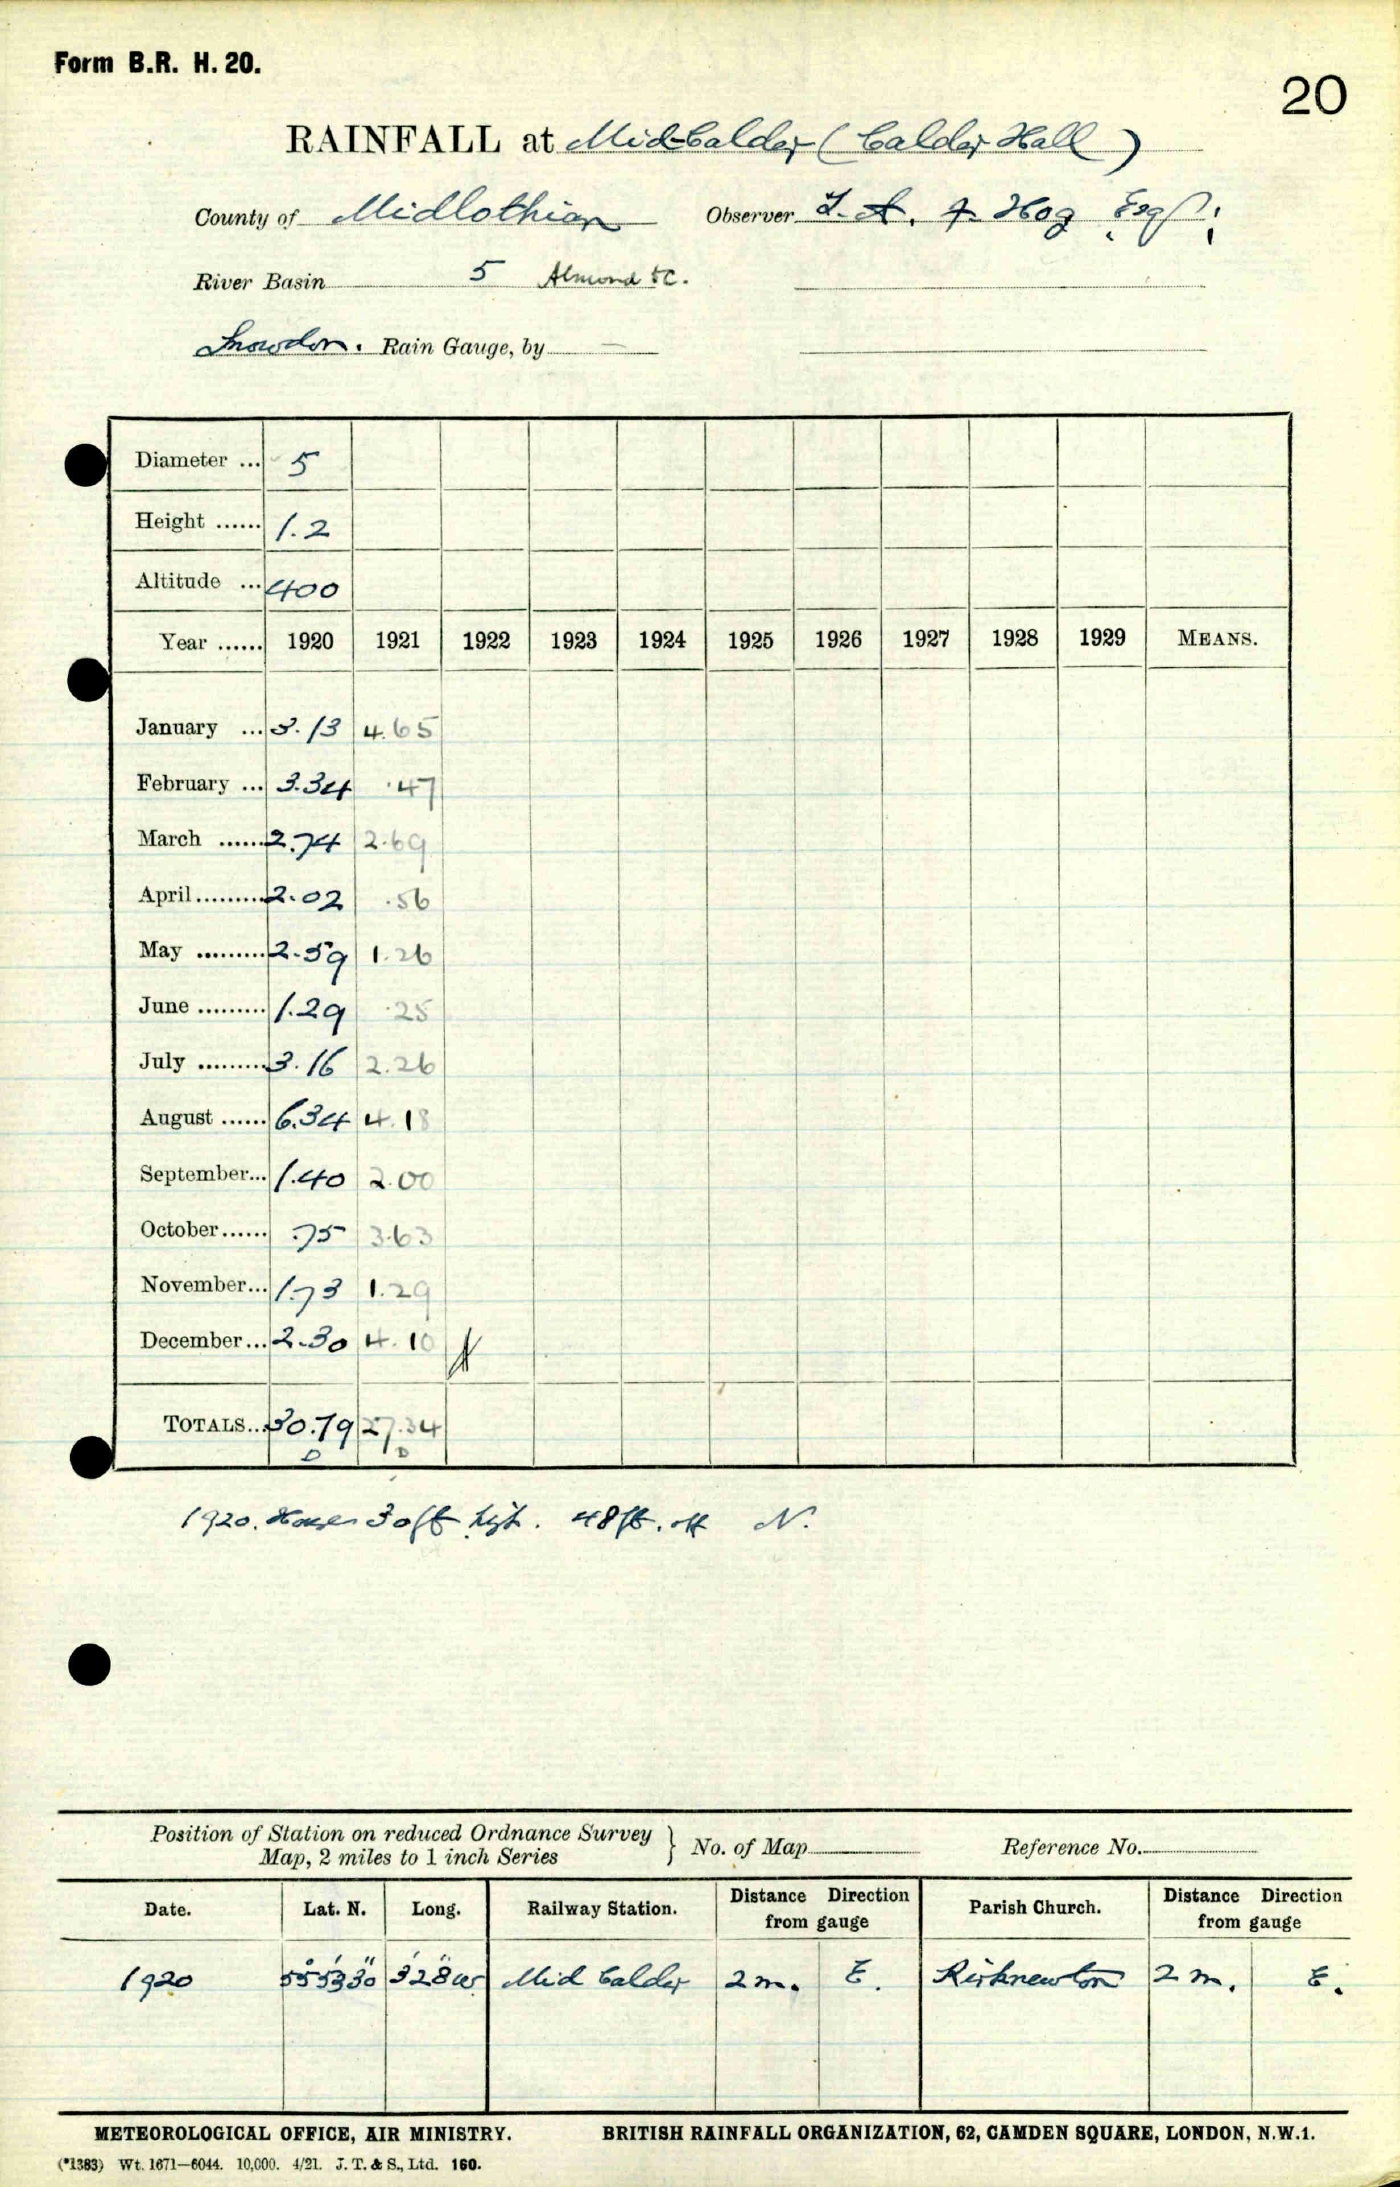 Form B.R. H. 20.
20
RAINFALL at Mid-Calder (Calder Hall)
County of Midlothian Observer T. A. F. Hog Esqr.
River Basin 5 Almond &c.
Snowdon. Rain Gauge, by —
Diameter ... 5
Height ...... 1.2
Altitude ... 400
Year ...... 1920 1921 1922 1923 1924 1925 1926 1927 1928 1929 MEANS.
January ... 3.13 4.65
February ... 3.34 .47
March ...... 2.74 2.69
April ......... 2.02 .56
May ......... 2.59 1.26
June ......... 1.29 .25
July ......... 3.16 2.26
August ...... 6.34 4.18
September... 1.40 2.00
October...... .75 3.63
November... 1.73 1.29
December... 2.30 4.10
TOTALS... 30.79 27.34
D D
1920. House 30ft high. 48ft. off N.
Position of Station on reduced Ordnance Survey
Map, 2 miles to 1 inch Series } No. of Map Reference No.
Date. Lat. N. Long. Railway Station. Distance Direction from gauge Parish Church. Distance Direction from gauge
1920 55° 53' 30" 3° 28' W Mid Calder 2 m. E. Kirknewton 2 m. E.
METEOROLOGICAL OFFICE, AIR MINISTRY. BRITISH RAINFALL ORGANIZATION, 62, CAMDEN SQUARE, LONDON, N.W.1.
(*1383) Wt. 1671—6044. 10,000. 4/21. J. T. & S., Ltd. 160.